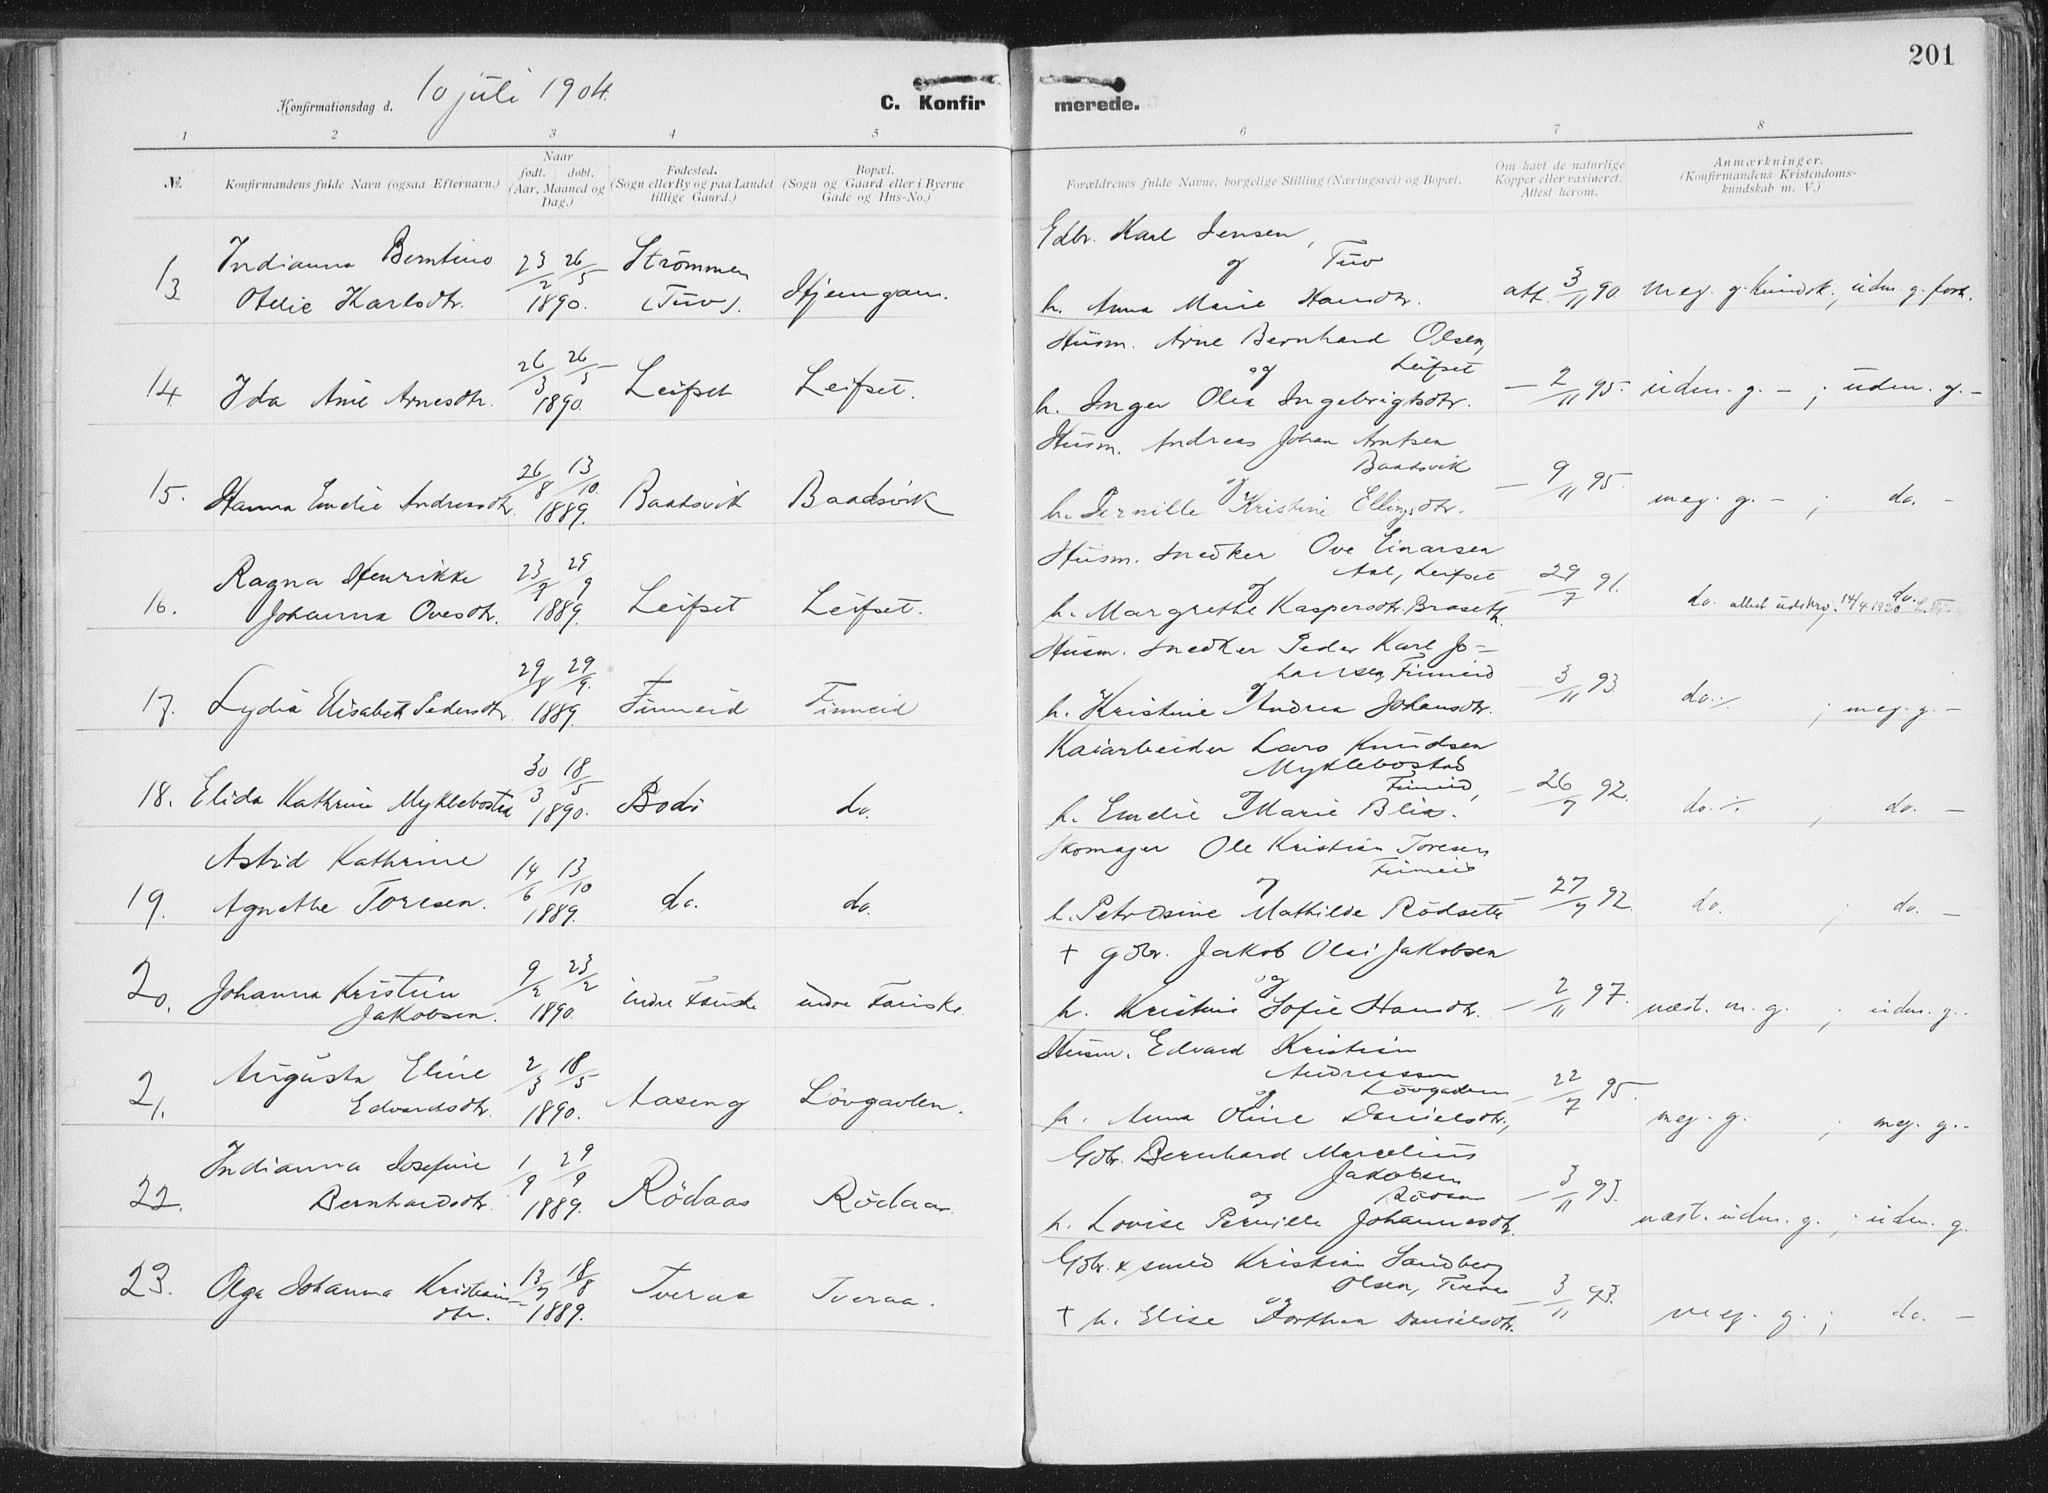 201
Konfirmationsdag d. 10 juli 1904.
C. Konfirmerede.
1 2 3 4 5 6 7 8
№
Konfirmandens fulde Navn (ogsaa Efternavn.)
Naar
født. døbt.
(Aar, Maaned og
Dag.)
Fødested.
(Sogn eller By og paa Landet
tillige Gaard.)
Bopæl.
(Sogn og Gaard eller i Byerne
Gade og Hus-No.)
Forældrenes fulde Navne, borgelige Stilling (Næringsvei) og Bopæl.
Om havt de naturlige
Kopper eller vaxineret.
Attest herom.
Anmærkninger.
(Konfirmandens Kristendoms-
kundskab m. V.)
13 Indianna Berntine
Otelie Karlsdtr. 23/2 26/5 1890. Strömmen
(Tuv). Hjemgam.
Gdbr. Karl Jensen,
og Tuv
h. Anna Marie Hansdtr. att. 3/11 90. meg. g. kundsk., uden. g. forh.
14 Ida Anie Arnesdtr. 26/3 26/5 1890. Leifset Leifset.
Husm. Arne Bernhard Olsen,
og Leifset
h. Inger Olea Ingebrigtsdtr. — 2/11 95. uden. g. – ; uden. g. –
15. Hanna Emelie Andreasdtr. 26/8 13/10 1889. Baadsvik Baadsvik
Husm. Andreas Johan Arntsen
og Baadsvik
h. Pernille Kristine Ellingsdtr. — 9/11 95. meg. g. – ; do. –
16. Ragna Henrikke
Johanna Ovesdtr. 23/7 29/9 1889. Leifset Leifset.
Husm. Snedker Ove Einarsen
og Aal, Leifset
h. Margrethe Kaspersdtr. Braseth. — 29/7 91. do. attest udskrev. 14/4 1920 do.
17. Lydia Elisabeth Pedersdtr. 29/8 29/9. 1889. Finneid Finneid
Husm. Snedker Peder Karl Jo-
hansen, Finneid
og
h. Kristine Andrea Johansdtr. — 3/11 93. do. ; meg. g. –
18. Elida Kathrine Myklebostad 30/3 18/5 1890. Bodö do.
Kaiarbeider Lars Knudsen
Myklebostad
og Finneid,
h. Emelie Marie Blix. — 26/7 92. do. ; do. –
19. Astrid Kathrine
Agnethe Toresen. 14/6 13/10 1889. do. do.
Skomager Ole Kristian Toresen
og Finneid
h. Petrosine Mathilde Rödseth — 27/7 92. do. ; do. –
20. Johanna Kristin
Jakobsen. 9/2 23/2 1890. indre Fauske indre Fauske.
† gdbr. Jakob Olai Jakobsen
og
h. Kristine Sofie Hansdtr. — 2/11 97. næst. m. g. ; uden. g.
21. Augusta Eline
Edvardsdtr. 2/3 18/5 1890. Aaseng Lövgavlen.
Husm. Edvard Kristian
Andreassen
og Lövgavlen
h. Anna Oline Danielsdtr., — 22/7 95. meg. g. ; meg. g.
22. Indianna Josefine
Bernhardsdtr. 1/9 29/9 1889. Rödaas Rödaas.
Gdbr. Bernhard Marcelius
Jakobsen
og Rödaas
h. Lovise Pernille Johannesdtr. — 3/11 93. næst. uden. g. ; uden. g.
23. Olga Johanna Kristians-
dtr. 13/7 18/8 1889. Tveraa Tveraa.
Gdbr. & smed Kristian Sandberg
Olsen, Tveraa
og
† h. Elise Dorthea Danielsdtr. — 3/11 93. meg. g. ; do. –